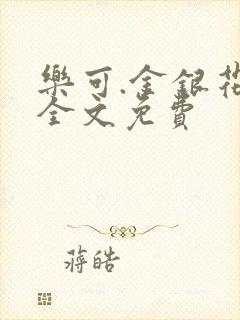 樂可.金銀花
全文免費
蔣皓